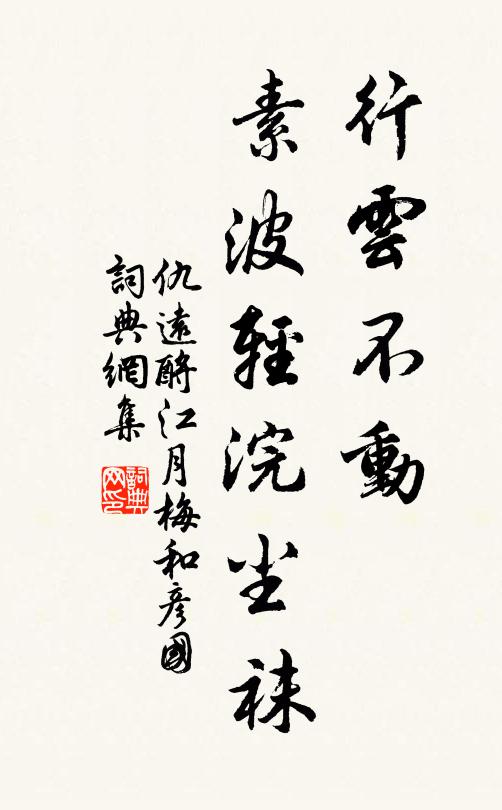 行雲不動
素波輕浣尘袜
仇遠酹江月梅和彥國
詞典網集
詞典网印